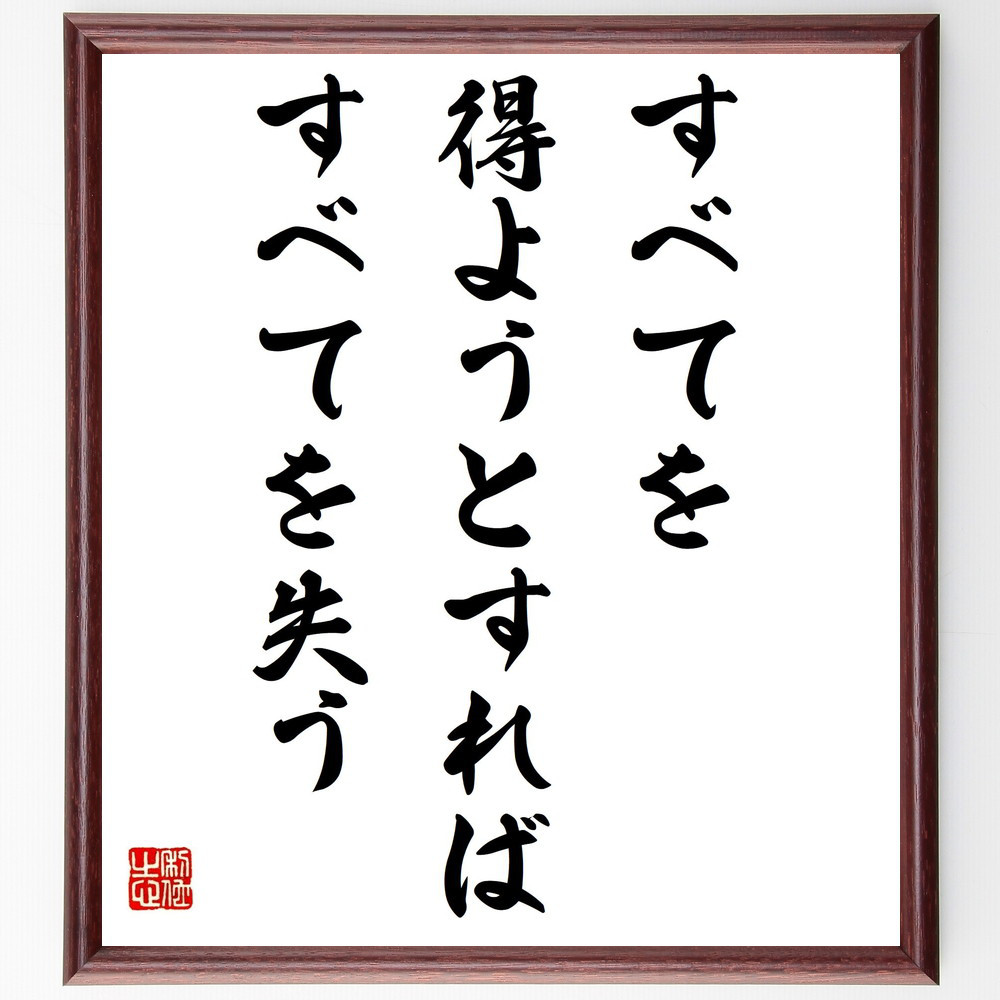 すべてを
得ようとすれば
すべてを失う